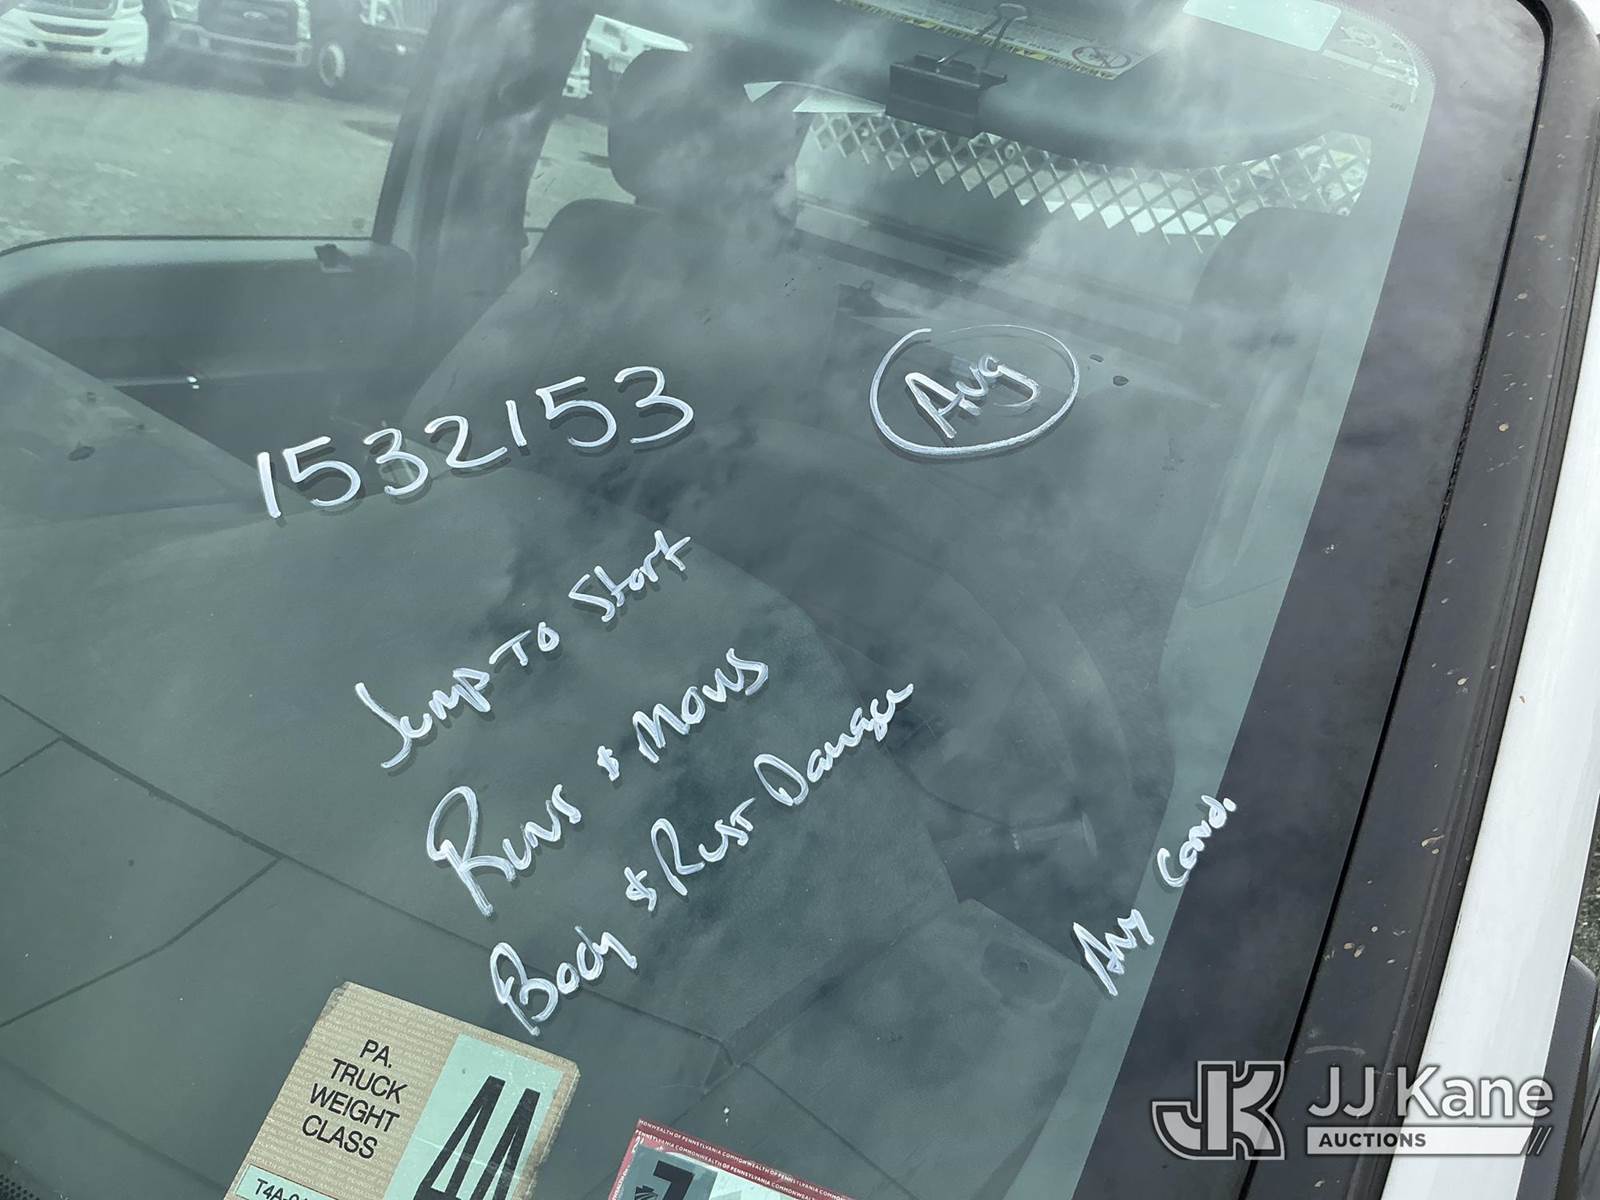 1532153
Avg
Jump To Start
Runs & Moves
Body & Rust Damage
Avg Cond.
PA.
TRUCK
WEIGHT
CLASS
4A
T4A-0
COMMONWEALTH OF PENNSYLVANIA COMMONWEALTH
JJ Kane
AUCTIONS